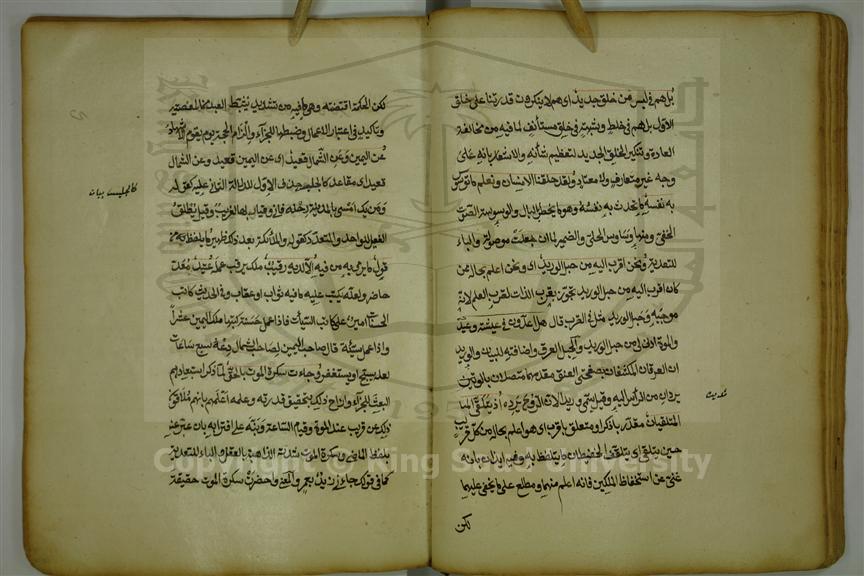 بل هم في لبس من خلق جديد اي هم لا ينكرون قدرتنا على خلق
الاول بل هم في خلط وشبهة في خلق مستأنف لما فيه من مخالفة
العادة وتنكير الخلق الجديد لتعظيم شأنه والاشعار بانه على
وجه غير متعارف ولا معتاد ولقد خلقنا الانسان ونعلم ما توسوس
به نفسه ما تحدث به نفسه وهو ما يخطر بالبال والوسوسة الصوت
الخفي ومنها وسواس الحلي والضمير لما ان جعلت موصولة والباء
للتعدية ونحن اقرب اليه من حبل الوريد اي ونحن اعلم بحاله ممن
كان اقرب اليه من حبل الوريد تجوز بقرب الذات لقرب العلم لانه
موجبه وحبل الوريد مثل في القرب قال هل اغدون في عيشة رغيد
والموت ادنى لي من حبل الوريد والحبل العرق واضافته للبيان والوريد
ان العرقان المكتنفان بصفحتي العنق في مقدمها متصلان بالوتين
يردان من الرأس اليه وقيل سمي وريدا لان الروح ترده اذ يتلقى
المتلقيان مقدر باذكر او متعلق باقرب اي هو اعلم بحاله من كل قريب
حين يتلقى اي يتلقن الحفيظان ما يتلفظ به وفيه ايذان بانه
غني عن استحفاظ الملكين فانه اعلم منهما ومطلع على ما يخفى عليهما
لكن
لكن الحكمة اقتضته وهي ما فيه من تشديد يثبط العبد عن المعصية
وتأكيد في اعتبار الاعمال وضبطها للجزاء والزام الحجة يوم يقوم الاشهاد
عن اليمين وعن الشمال قعيد اي عن اليمين قعيد وعن الشمال
قعيد اي مقاعد كالجليس فحذف الاول لدلالة الثاني عليه كقوله
ومن يك امسى بالمدينة رحله فاني وقيار بها لغريب وقيل يطلق
الفعيل للواحد والمتعدد كقوله والملائكة بعد ذلك ظهير ما يلفظ من
قول ما يرمي به من فيه الا لديه رقيب ملك يرقب عمله عتيد معد
حاضر ولعله يكتب عليه ما فيه ثواب او عقاب وفي الحديث كاتب
الحسنات امين على كاتب السيئات فاذا عمل حسنة كتبها ملك اليمين عشرا
واذا عمل سيئة قال صاحب اليمين لصاحب الشمال دعه سبع ساعات
لعله يسبح او يستغفر وجاءت سكرة الموت بالحق لما ذكر استبعادهم
البعث للجزاء وازاح ذلك بتحقيق قدرته وعلمه اعلمهم بانهم يلاقون
ذلك عن قريب عند الموت وقيام الساعة ونبه على اقترابه بان عبر عنه
بلفظ الماضي وسكرة الموت شدته الذاهبة بالعقل والباء للتعدية
كما في قولك جاء زيد بعمرو والمعنى واحضرت سكرة الموت حقيقة
Copyright © King Saud University